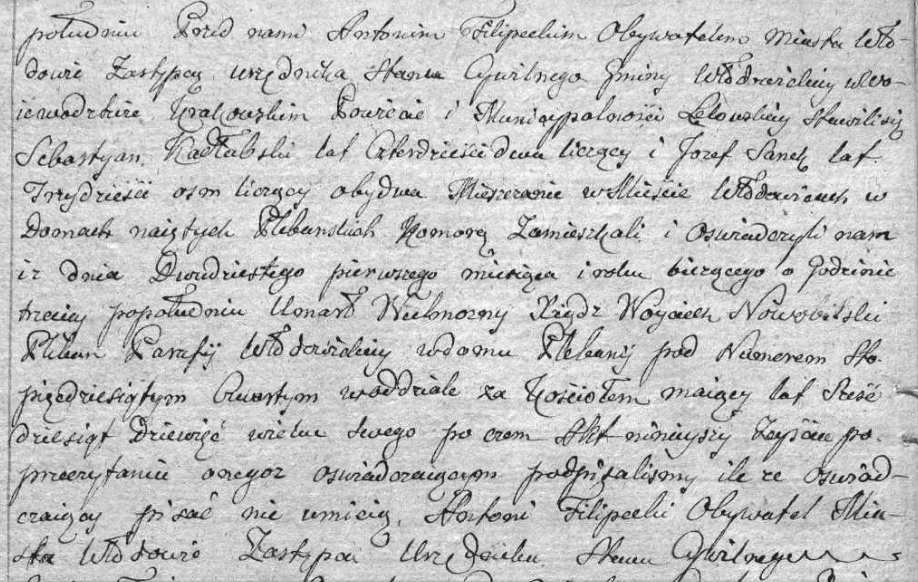 południu Przed nami Antonim Filipeckim Obywatelem Miasta Wło-
dowic Zastępcą urzędnika Stanu Cywilnego Gminy Włodowickiey w Wo-
iewodztwie Krakowskim Powiecie i Municypalności Lelowskiey Stawili się
Sebastyan Kadłubski lat Czterdzieści dwa liczący i Jozef Sanek lat
Trzydzieści osm liczący obydwa Mieszczanie w Mieście Włodowicach w
Domach naiętych Plebanskich Komorą Zamieszkali i oswiadczyli nam
iż dnia Dwudziestego pierwszego miesiąca i roku bieżącego o Godzinie
trzeciey popołudniu Umarł Wielmozny Xiądz Woyciech Nowobilski
Pleban Parafij Włodowickiey w domu Plebanij pod Numerem Sto
pięćdziesiątym Czwartym w oddziale za Kościołem maiący lat Sześć
dziesiąt Dziewięć wieku swego po czem Akt ninieyszy Zeyścia po
przeczytaniu onegoz oswiadczaiącym podpisalismy ile ze oswiad-
czaiący pisać nie umieią. Antoni Filipecki Obywatel Mia-
sta Włodowic Zastępca Urzędnika Stanu Cywilnego